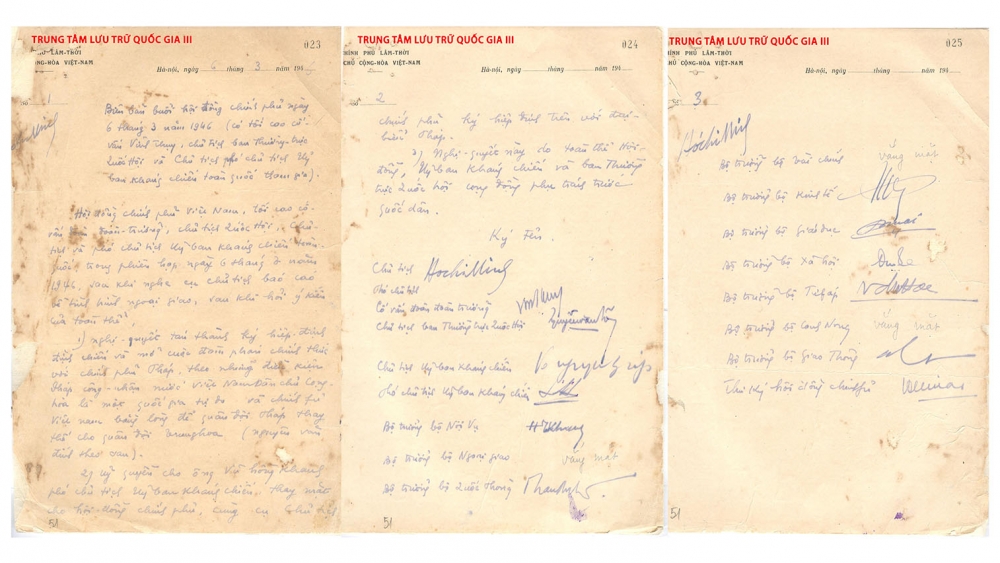 TRUNG TÂM LƯU TRỮ QUỐC GIA III
023
PHỦ LÂM-THỜI
CỘNG-HÒA VIỆT-NAM
Hà-nội, ngày 6 tháng 3 năm 194
Số 1
Biên bản buổi hội đồng chính phủ ngày
6 tháng 3 năm 1946 (có tối cao cố-
vấn Vĩnh Thụy, chủ tịch ban Thường-trực
Quốc Hội và Chủ tịch phó chủ tịch Uỷ
ban kháng chiến toàn quốc tham gia).
Hội đồng chính phủ Việt Nam, tối cao cố-
vấn đoàn-trưởng, chủ tịch Quốc Hội, Chủ-
tịch và phó chủ tịch Uỷ ban kháng chiến toàn-
quốc, trong phiên họp ngày 6 tháng 3 năm
1946, sau khi nghe cụ chủ tịch báo cáo
về tình hình ngoại giao, sau khi hỏi ý kiến
của toàn thể,
1) nghị-quyết tán thành ký hiệp định
đình chiến và mở cuộc đàm phán chính thức
với chính phủ Pháp, theo những điều kiện
Pháp công-nhận nước Việt Nam Dân chủ Cộng
hòa là một quốc gia tự do và chính phủ
Việt nam bằng lòng để quân đội Pháp thay
thế cho quân đội Trung hoa (nguyên văn
đính theo sau).
2) uỷ quyền cho ông Vũ Hồng Khanh
phó chủ tịch Uỷ ban kháng chiến, thay mặt
cho hội-đồng chính phủ, cùng cụ Chủ tịch
51
TRUNG TÂM LƯU TRỮ QUỐC GIA III
024
HÍNH PHỦ LÂM-THỜI
CHỦ CỘNG-HÒA VIỆT-NAM
Hà-nội, ngày tháng năm 194
Số 2
chính phủ ký hiệp định trên với đại-
biểu Pháp.
3) Nghị-quyết này do toàn thể Hội-
đồng, Uỷ ban kháng chiến và ban Thường
trực Quốc hội cộng đồng phụ trách trước
quốc dân.
Ký tên,
Chủ tịch Hochiminh
Phó chủ tịch
Cố vấn đoàn đoàn trưởng Vinhthuy
Chủ tịch ban Thường trực Quốc Hội Nguyễn văn Tố
Chủ tịch Uỷ ban kháng chiến Vo nguyen Giap
Phó chủ tịch Uỷ ban kháng chiến
Bộ trưởng bộ Nội Vụ HKhang
Bộ trưởng bộ Ngoại giao vắng mặt
Bộ trưởng bộ Quốc Phòng PhanAnh
51
TRUNG TÂM LƯU TRỮ QUỐC GIA III
025
HÍNH PHỦ LÂM-THỜI
HỦ CỘNG-HÒA VIỆT-NAM
Hà-nội, ngày tháng năm 194
Số 3
Hochiminh
Bộ trưởng bộ tài chính vắng mặt
Bộ trưởng bộ Kinh tế
Bộ trưởng bộ Giáo dục
Bộ trưởng bộ Xã hội
Bộ trưởng bộ Tư pháp
Bộ trưởng bộ Canh Nông vắng mặt
Bộ trưởng bộ Giao Thông
Thư ký hội đồng chính phủ
51